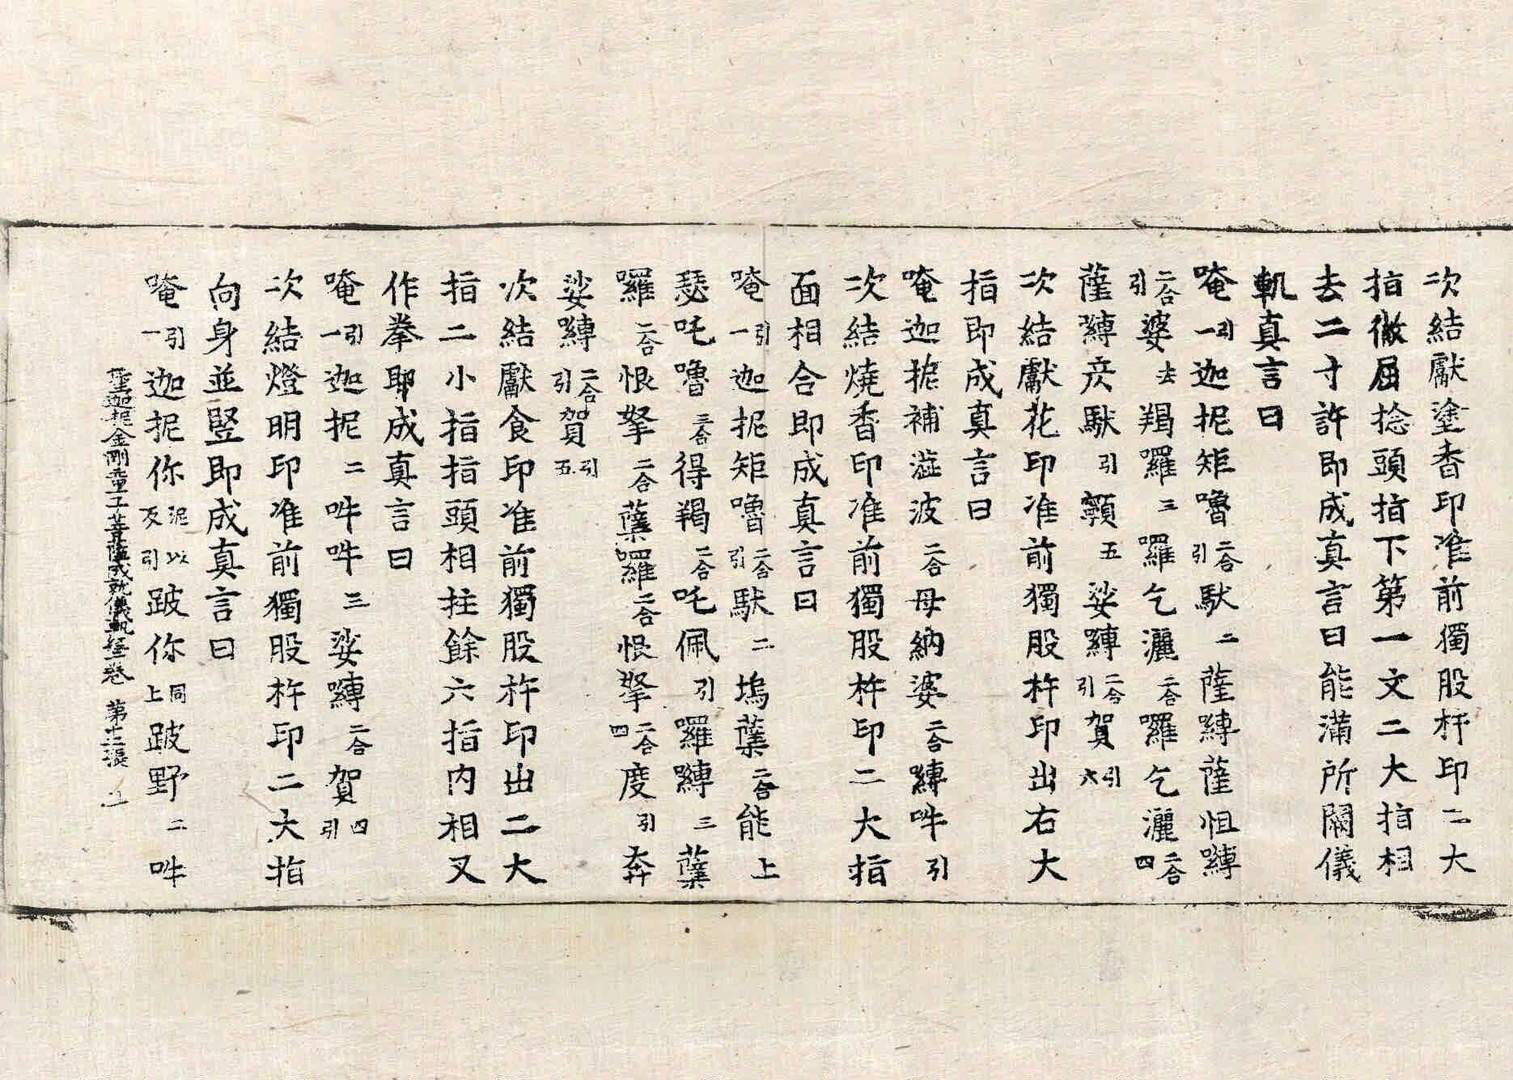 次結獻塗香印准前獨股杵印二大
指微屈捻頭指下第一文二大指相
去二寸許即成真言曰能滿所闕儀
軌真言曰
唵引一迦抳矩嚕二合引馱二薩嚩薩怛嚩
二合引婆去羯囉三囉乞灑二合囉乞灑二合四
薩嚩馱引顙五娑嚩二合引賀引六
次結獻花印准前獨股杵印出右大
指即成真言曰
唵迦抳補澁波二合母納婆二合嚩吽引
次結燒香印准前獨股杵印二大指
面相合即成真言曰
唵引一迦抳矩嚕二合引馱二塢蘖二合能上
瑟吒嚕二合得羯二合吒佩引囉嚩三蘖
囉二合恨拏二合蘖囉二合恨拏二合四度引奔
娑嚩二合引賀引五
次結獻食印准前獨股杵印出二大
指二小指指頭相拄餘六指內相叉
作拳即成真言曰
唵引一迦抳二吽吽三娑嚩二合賀四引
次結燈明印准前獨股杵印二大指
向身並竪即成真言曰
唵引一迦抳你泥以反引跛你同上跛野二吽
聖迦抳金剛童子菩薩成就儀軌經卷 第十二張